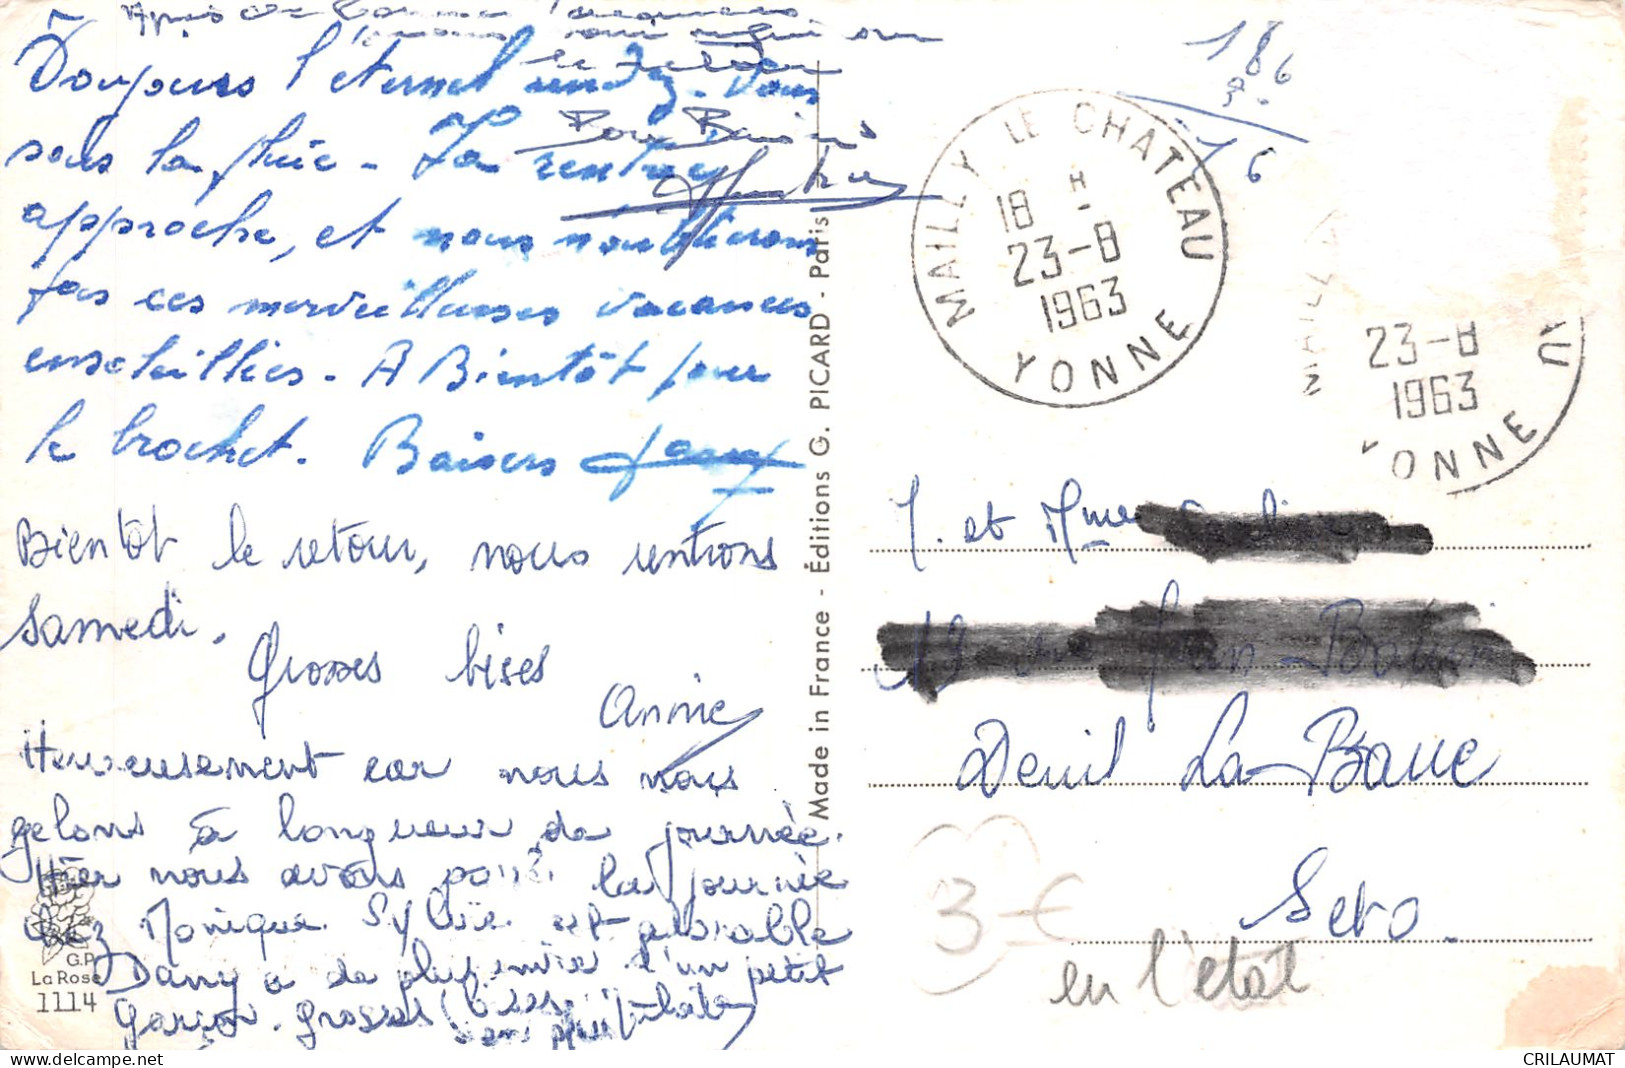 Après de bonnes vacances
le retour
Bons Baisers
Toujours l'éternel rendez-vous
sous la pluie - La rentrée
approche, et nous n'oublierons
pas ces merveilleuses vacances
ensoleillées. A Bientôt pour
le brochet. Baisers
Bientôt le retour, nous rentrons
samedi.
Grosses bises
Annie
Heureusement car nous nous
gelons à longueur de journée.
Hier nous avons passé la journée
chez Monique. Sylvie est adorable
Dany a de plus envie d'un petit
garçon. grosses bises
G.P.
La Rose
1114
Made in France - Éditions G. PICARD - Paris
186
16
MAILLY LE CHATEAU
18 H
23-8
1963
YONNE
MAILLY
U
23-8
1963
YONNE
M. et Mme
Deuil La-Barre
Seto.
3 €
en l'état
CRILAUMAT